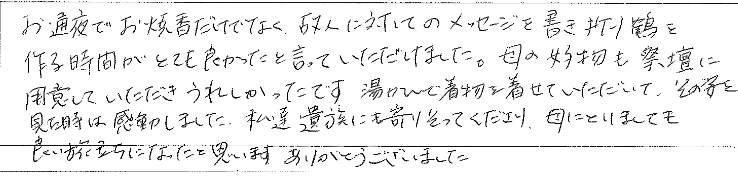 お通夜でお焼香だけでなく、故人に対してのメッセージを書き折り鶴を
作る時間がとても良かったと言っていただけました。母の好物も祭壇に
用意していただきうれしかったです 湯かんで着物を着せていただいて、その姿を
見た時は感動しました。私達遺族にも寄りそってくださり、母にとりましても
良い旅立ちになったと思います ありがとうございました